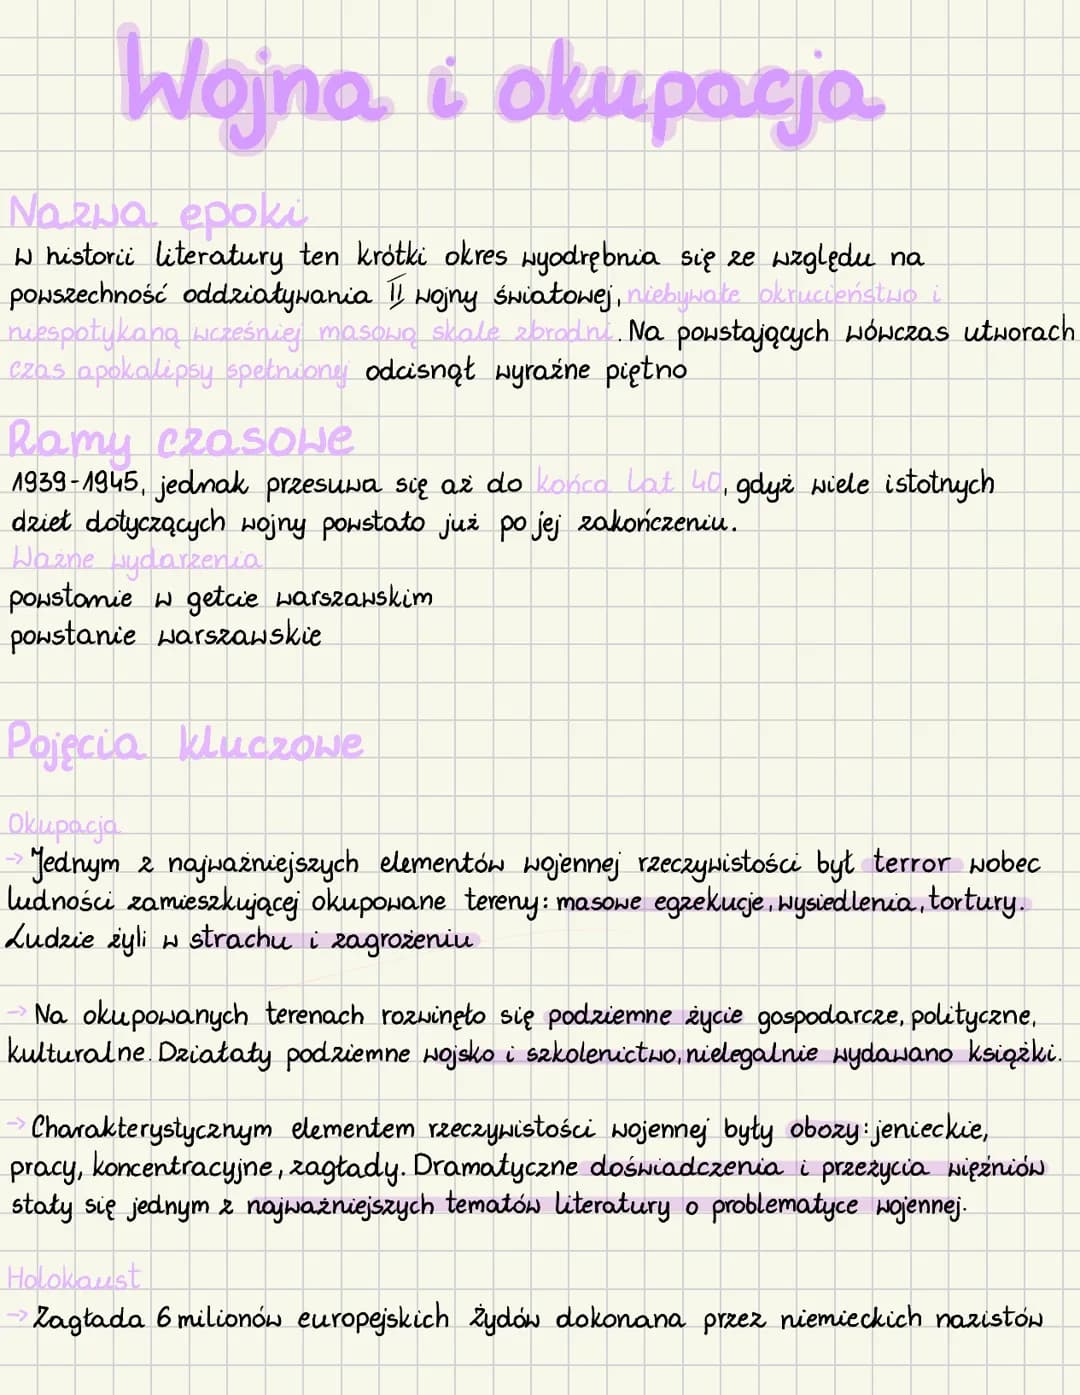 Wojna i okupacja
Nazwa epoki
W historii literatury ten krótki okres wyodrębnia się ze względu na
powszechność oddziaływania II wojny światowej, niebywałe okrucieństwo i
niespotykaną wcześniej masową skalę zbrodni. Na powstających wówczas utworach
czas apokalipsy spełnionej odcisnął wyraźne piętno
Ramy czasowe
1939-1945, jednak przesuwa się aż do końca lat 40, gdyż wiele istotnych
dzieł dotyczących wojny powstało już po jej zakończeniu.
Ważne wydarzenia
powstanie w getcie warszawskim
powstanie warszawskie
Pojęcia kluczowe
Okupacja
→ Jednym z najważniejszych elementów wojennej rzeczywistości był terror wobec
ludności zamieszkującej okupowane tereny: masowe egzekucje, wysiedlenia, tortury.
Ludzie żyli w strachu i zagrożeniu
→ Na okupowanych terenach rozwinęło się podziemne życie gospodarcze, polityczne,
kulturalne. Działały podziemne wojsko i szkolenictwo, nielegalnie wydawano książki.
→ Charakterystycznym elementem rzeczywistości wojennej były obozy: jenieckie,
pracy, koncentracyjne, zagłady. Dramatyczne doświadczenia i przeżycia więźniów
stały się jednym z najważniejszych tematów literatury o problematyce wojennej.
Holokaust
→ Zagłada 6 milionów europejskich Żydów dokonana przez niemieckich nazistów